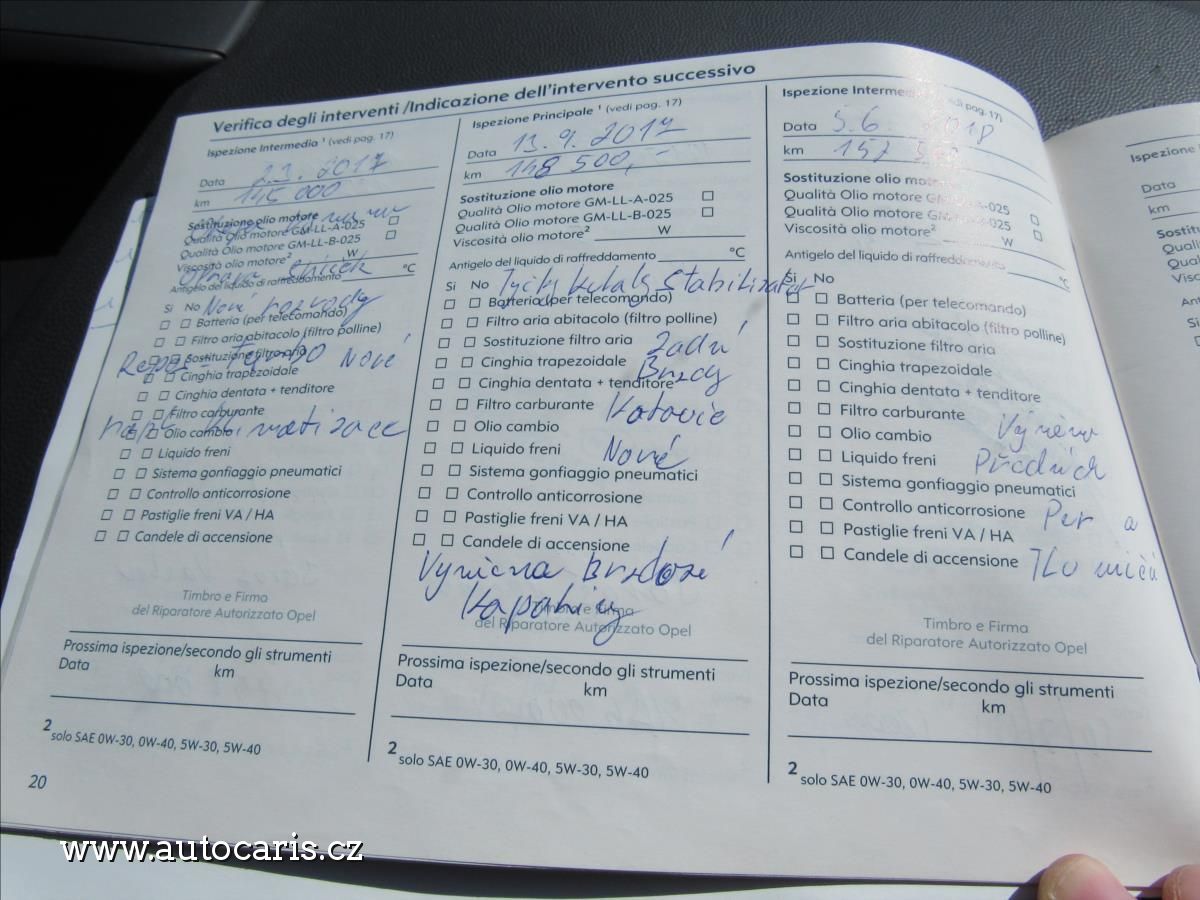 Verifica degli interventi /Indicazione dell'intervento successivo
Ispezione Intermedia ¹ (vedi pag. 17)
Data 2017
km 145 000
Sostituzione olio motore
Qualità Olio motore GM-LL-A-025
Qualità Olio motore GM-LL-B-025
Viscosità olio motore² W
Oprava
Antigelo del liquido di raffreddamento °C
Si No Nové rozvody
Batteria (per telecomando)
Filtro aria abitacolo (filtro polline)
Sostituzione filtro aria
Repas Turbo Nové
Cinghia trapezoidale
Cinghia dentata + tenditore
Filtro carburante
Olio cambio
Liquido freni
Sistema gonfiaggio pneumatici
Controllo anticorrosione
Pastiglie freni VA / HA
Candele di accensione
Timbro e Firma
del Riparatore Autorizzato Opel
Prossima ispezione/secondo gli strumenti
Data km
2 solo SAE 0W-30, 0W-40, 5W-30, 5W-40
20
Ispezione Principale ¹ (vedi pag. 17)
Data 13. 9. 2017
km 148 500,-
Sostituzione olio motore
Qualità Olio motore GM-LL-A-025
Qualità Olio motore GM-LL-B-025
Viscosità olio motore² W
Antigelo del liquido di raffreddamento °C
Si No
Batteria (per telecomando)
Filtro aria abitacolo (filtro polline)
Sostituzione filtro aria Zadní
Cinghia trapezoidale Brzdy
Cinghia dentata + tenditore
Filtro carburante Kotouče
Olio cambio
Liquido freni Nové
Sistema gonfiaggio pneumatici
Controllo anticorrosione
Pastiglie freni VA / HA
Candele di accensione
Výměna Brzdové
Kapaliny
Timbro e Firma
del Riparatore Autorizzato Opel
Prossima ispezione/secondo gli strumenti
Data km
2 solo SAE 0W-30, 0W-40, 5W-30, 5W-40
Ispezione Intermedia (vedi pag. 17)
Data 5.6. 2018
km
Sostituzione olio motore
Qualità Olio motore GM-LL-A-025
Qualità Olio motore GM-LL-B-025
Viscosità olio motore² W
Antigelo del liquido di raffreddamento °C
Si No
Batteria (per telecomando)
Filtro aria abitacolo (filtro polline)
Sostituzione filtro aria
Cinghia trapezoidale
Cinghia dentata + tenditore
Filtro carburante Výměna
Olio cambio
Liquido freni Předních
Sistema gonfiaggio pneumatici
Controllo anticorrosione Per a
Pastiglie freni VA / HA
Candele di accensione Tlumičů
Timbro e Firma
del Riparatore Autorizzato Opel
Prossima ispezione/secondo gli strumenti
Data km
2 solo SAE 0W-30, 0W-40, 5W-30, 5W-40
Data
km
www.autocaris.cz